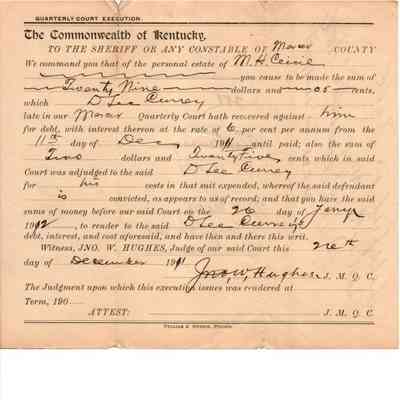 QUARTERLY COURT EXECUTION.
The Commonwealth of Kentucky,
TO THE SHERIFF OR ANY CONSTABLE OF Mercer COUNTY
We command you that of the personal estate of M. H. Cecil
you cause to be made the sum of
Twenty Nine dollars and 05 cents,
which D Lee Currey
late in our Mercer Quarterly Court hath recovered against him
for debt, with interest thereon at the rate of 6 per cent per annum from the
11th day of Dec 1911 until paid; also the sum of
Two dollars and Twenty Five cents which in said
Court was adjudged to the said D Lee Currey
for his costs in that suit expended, whereof the said defendant
is convicted, as appears to us of record; and that you have the said
sums of money before our said Court on the 26 day of
1912, to render to the said D Lee Currey
debt, interest, and cost aforesaid, and have then and there this writ.
Witness, JNO. W. HUGHES, Judge of our said Court this 26th
day of December 1911
Jno. W. Hughes J. M. Q. C.
The Judgment upon which this execution issues was rendered at
Term, 190
ATTEST: J. M. Q. C.